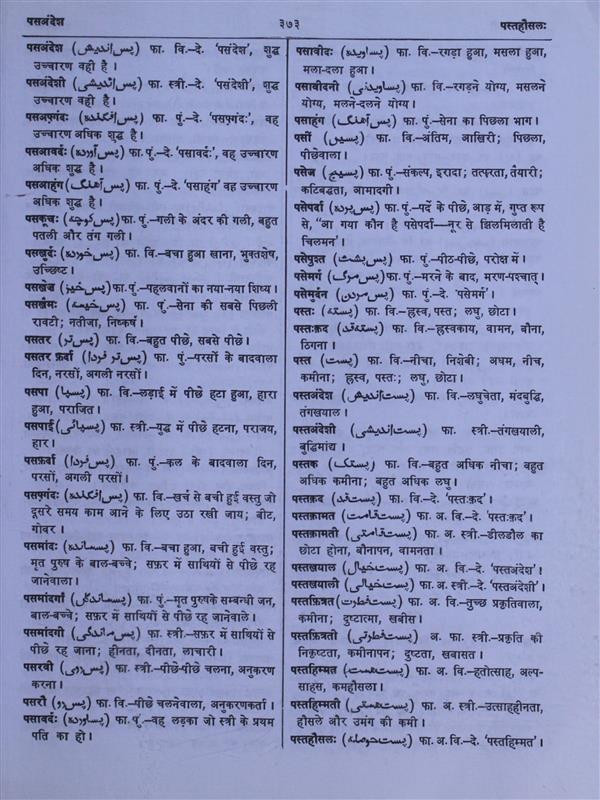 पसअंदेश
३७३
पस्तहौसलः
पसअंदेश (پس اندیش) फा. वि.–दे. 'पसंदेश', शुद्ध
उच्चारण वही है ।
पसअंदेशी (پس اندیشی) फा. स्त्री.–दे. 'पसंदेशी', शुद्ध
उच्चारण वही है ।
पसअफ़्गंदः (پس افگندہ) फा. पुं.–दे. 'पसफ़्गंदः', वह
उच्चारण अधिक शुद्ध है ।
पसआवर्दः (پس آوردہ) फा. पुं.–दे. 'पसावर्दः', वह उच्चारण
अधिक शुद्ध है ।
पसआहंग (پس آهنگ) फा. पुं.–दे. 'पसाहंग' वह उच्चारण
अधिक शुद्ध है ।
पसकूचः (پس کوچہ) फा. पुं.–गली के अंदर की गली, बहुत
पतली और तंग गली ।
पसखुर्दः (پس خوردہ) फा. वि.–बचा हुआ खाना, भुक्तशेष,
उच्छिष्ट ।
पसखेज़ (پس خیز) फा. पुं.–पहलवानों का नया-नया शिष्य ।
पसखेमः (پس خیمہ) फा. पुं.–सेना की सबसे पिछली
रावटी; नतीजा, निष्कर्ष ।
पसतर (پس تر) फा. वि.–बहुत पीछे, सबसे पीछे ।
पसतर फ़र्दा (پس تر فردا) फा. पुं.–परसों के बादवाला
दिन, नरसों, अगली नरसों ।
पसपा (پسپا) फा. वि.–लड़ाई में पीछे हटा हुआ, हारा
हुआ, पराजित ।
पसपाई (پسپائی) फा. स्त्री.–युद्ध में पीछे हटना, पराजय,
हार ।
पसफ़र्दा (پس فردا) फा. पुं.–कल के बादवाला दिन,
परसों, अगली परसों ।
पसफ़्गंदः (پس افگندہ) फा. वि.–खर्च से बची हुई वस्तु जो
दूसरे समय काम आने के लिए उठा रखी जाय; बीट,
गोबर ।
पसमांदः (پسماندہ) फा. वि.–बचा हुआ, बची हुई वस्तु;
मृत पुरुष के बाल-बच्चे; सफ़र में साथियों से पीछे रह
जानेवाला ।
पसमांदगाँ (پسماندگاں) फा. पुं.–मृत पुरुषके सम्बन्धी जन,
बाल-बच्चे; सफ़र में साथियों से पीछे रह जानेवाले ।
पसमांदगी (پس ماندگی) फा. स्त्री.–सफ़र में साथियों से
पीछे रह जाना; हीनता, दीनता, लाचारी ।
पसरवी (پس روی) फा. स्त्री.–पीछे-पीछे चलना, अनुकरण
करना ।
पसरौ (پس رو) फा. वि.–पीछे चलनेवाला, अनुकरणकर्ता ।
पसावर्दः (پساوردہ) फा. पुं.–वह लड़का जो स्त्री के प्रथम
पति का हो ।
पसावीदः (پساویدہ) फा. वि.–रगड़ा हुआ, मसला हुआ,
मला-दला हुआ ।
पसावीदनी (پساویدنی) फा. वि.–रगड़ने योग्य, मसलने
योग्य, मलने-दलने योग्य ।
पसाहंग (پس آهنگ) फा. पुं.–सेना का पिछला भाग ।
पसीं (پسیں) फा. वि.–अंतिम, आखिरी; पिछला,
पीछेवाला ।
पसेज (پسیج) फा. पुं.–संकल्प, इरादा; तत्परता, तैयारी;
कटिबद्धता, आमादगी ।
पसेपर्दा (پس پردہ) फा. पुं.–पर्दे के पीछे, आड़ में, गुप्त रूप
से, "आ गया कौन है पसेपर्दा—नूर से झिलमिलाती है
चिलमन' ।
पसेपुश्त (پس پشت) फा. पुं.–पीठ-पीछे, परोक्ष में ।
पसेमर्ग (پس مرگ) फा. पुं.–मरने के बाद, मरण-पश्चात् ।
पसेमुर्दन (پس مردن) फा. पुं.–दे. 'पसेमर्ग' ।
पस्तः (پستہ) फा. वि.–ह्रस्व, पस्त; लघु, छोटा ।
पस्तःक़द (پستہ قد) फा. वि.–ह्रस्वकाय, वामन, बौना,
ठिगना ।
पस्त (پست) फा. वि.–नीचा, निशेबी; अधम, नीच,
कमीना; ह्रस्व, पस्तः; लघु, छोटा ।
पस्तअंदेश (پست اندیش) फा. वि.–लघुचेता, मंदबुद्धि,
तंगखयाल ।
पस्तअंदेशी (پست اندیشی) फा. स्त्री.–तंगखयाली,
बुद्धिमांद्य ।
पस्तक (پستک) फा. वि.–बहुत अधिक नीचा; बहुत
अधिक कमीना; बहुत अधिक लघु ।
पस्तक़द (پست قد) फा. वि.–दे. 'पस्तःक़द' ।
पस्तक़ामत (پست قامت) फा. अ. वि.–दे. 'पस्तःक़द' ।
पस्तक़ामती (پست قامتی) फा. अ. स्त्री.–डीलडौल का
छोटा होना, बौनापन, वामनता ।
पस्तखयाल (پست خیال) फा. अ. वि.–दे. 'पस्तअंदेश' ।
पस्तखयाली (پست خیالی) फा. अ. स्त्री.–दे. 'पस्तअंदेशी' ।
पस्तफ़ित्रत (پست فطرت) फा. अ. वि.–तुच्छ प्रकृतिवाला,
कमीना; दुष्टात्मा, खबीस ।
पस्तफ़ित्रती (پست فطرتی) अ. फा. स्त्री.–प्रकृति की
निकृष्टता, कमीनापन; दुष्टता, खबासत ।
पस्तहिम्मत (پست همت) फा. अ. वि.–हतोत्साह, अल्प-
साहस, कमहौसला ।
पस्तहिम्मती (پست همتی) फा. अ. स्त्री.–उत्साहहीनता,
हौसले और उमंग की कमी ।
पस्तहौसलः (پست حوصلہ) फा. अ. वि.–दे. 'पस्तहिम्मत' ।